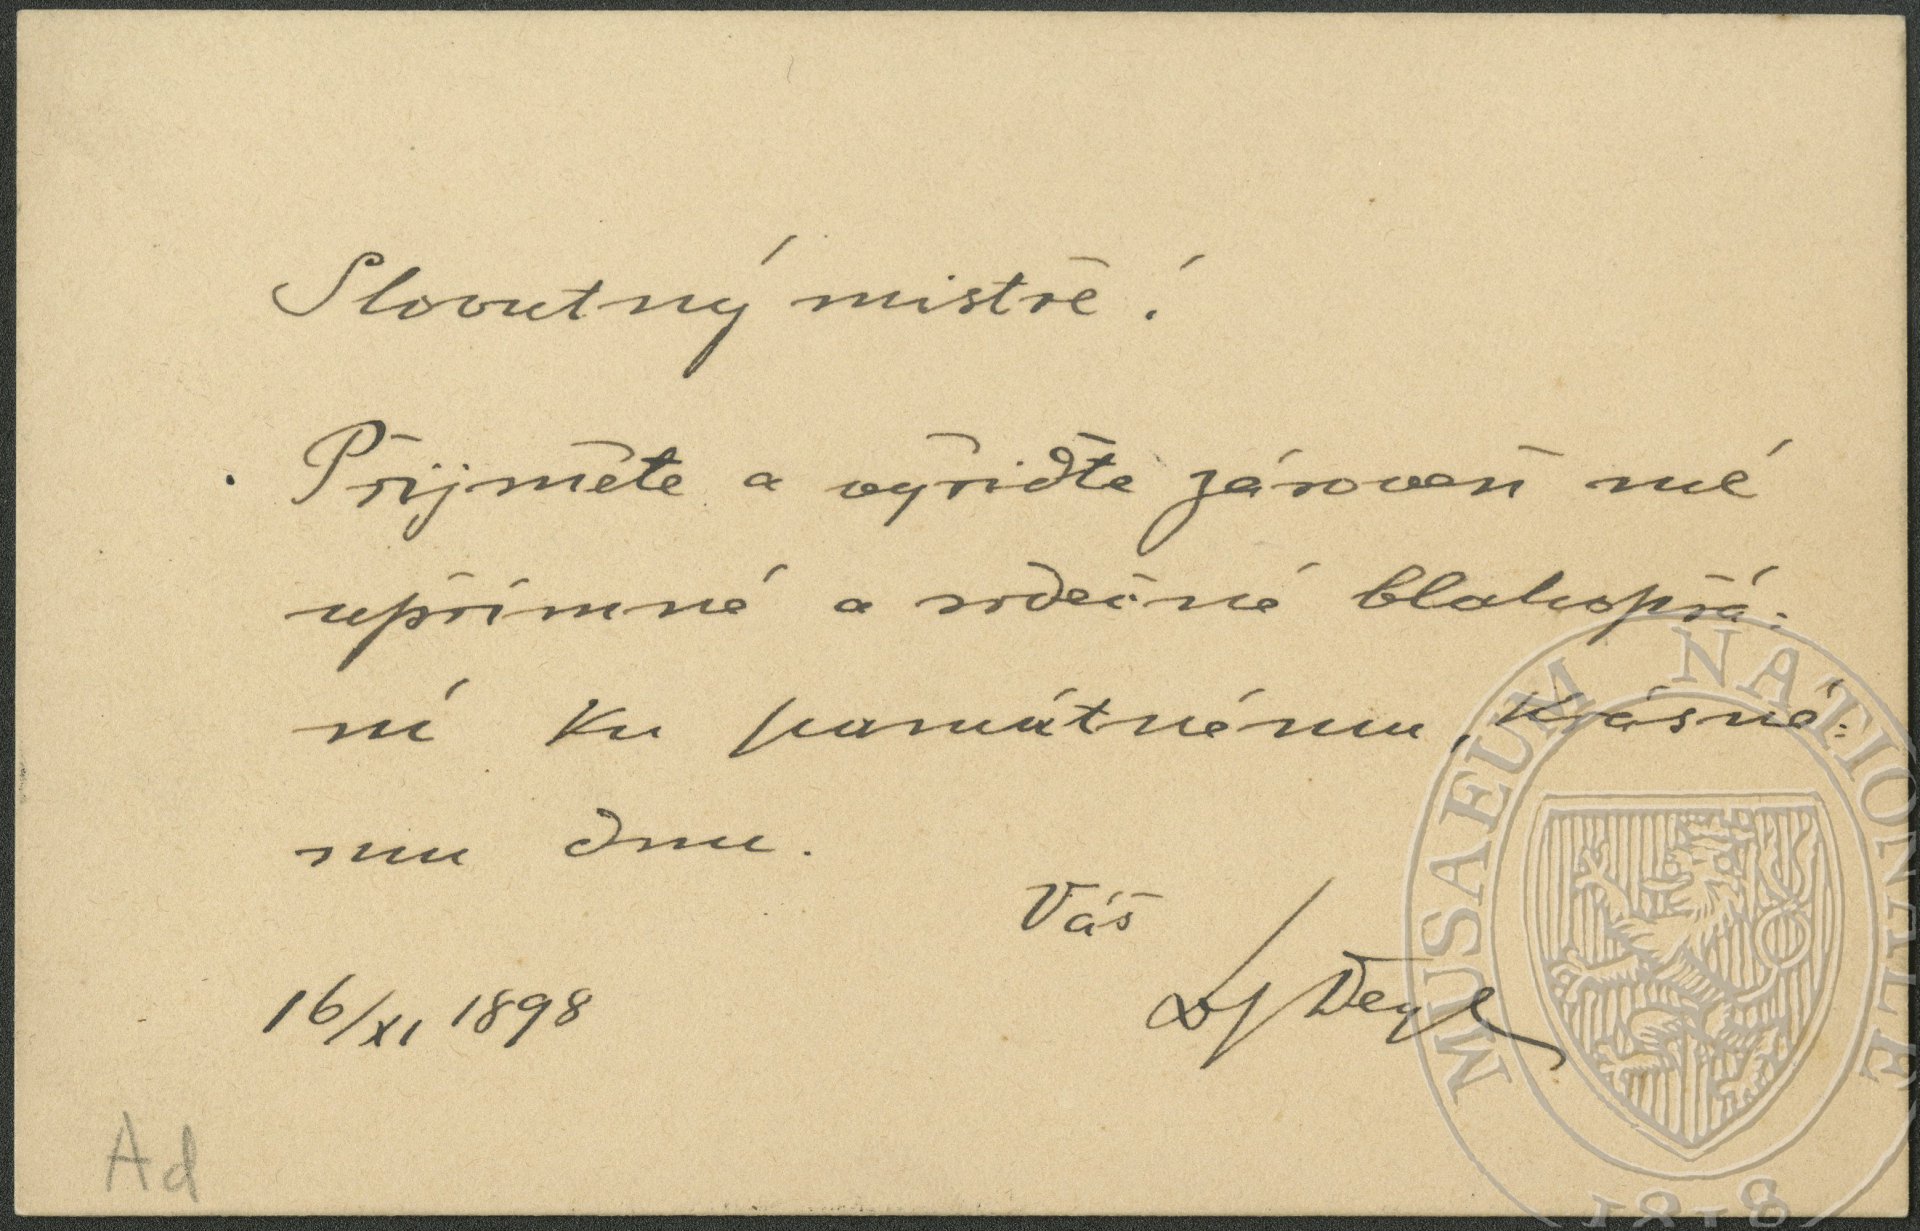 Slovutný mistře!
Přijměte a vyřiďte zároveň mé
upřímné a srdečné blahopřá:
ní ku památnému, krásné:
mu dnu.
Váš
16/XI 1898
Ad
MUSAEUM NATIONALE
1818